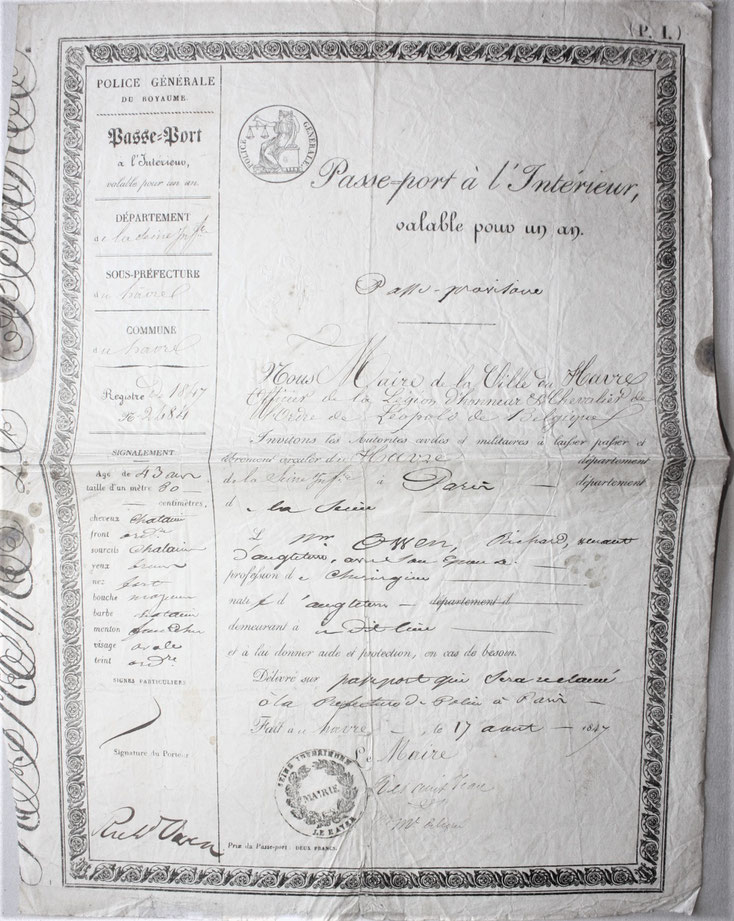 (P. I.)
POLICE GÉNÉRALE
DU ROYAUME.
Passe=Port
à l'Intérieur,
valable pour un an.
DÉPARTEMENT
de la Seine Infre
SOUS-PRÉFECTURE
du havre
COMMUNE
du havre
Registre 1847
No 2484
SIGNALEMENT
Age de 43 ans
taille d'un mètre 80
centimètres,
cheveux Chatain
front ordre
sourcils Chatain
yeux
nez fort
bouche moyenne
barbe Chatain
menton
visage ovale
teint ordre
SIGNES PARTICULIERS
Signature du Porteur
Richd Owen
POLICE GÉNÉRALE
Passe=port à l'Intérieur,
valable pour un an.
Passe-provisoire
Nous Maire de la Ville du Havre
Officier de la Légion d'honneur & Chevalier de
l'Ordre de Léopold de Belgique
Invitons les Autorités civiles et militaires à laisser passer et
librement circuler du Havre département
de la Seine Infre à Paris département
d la Seine
L Mr Owen, Richard, venant
d'angleterre, avec son
profession de Chirurgien
natif d'angleterre département d
demeurant à dit lieu
et à lui donner aide et protection, en cas de besoin.
Délivré sur passport qui sera réclamé
à la Préfecture de Police à Paris
Fait au havre, le 17 aout 1847
Le Maire
SEINE INFÉRIEURE
MAIRIE
LE HAVRE
Prix du Passe-port: DEUX FRANCS.